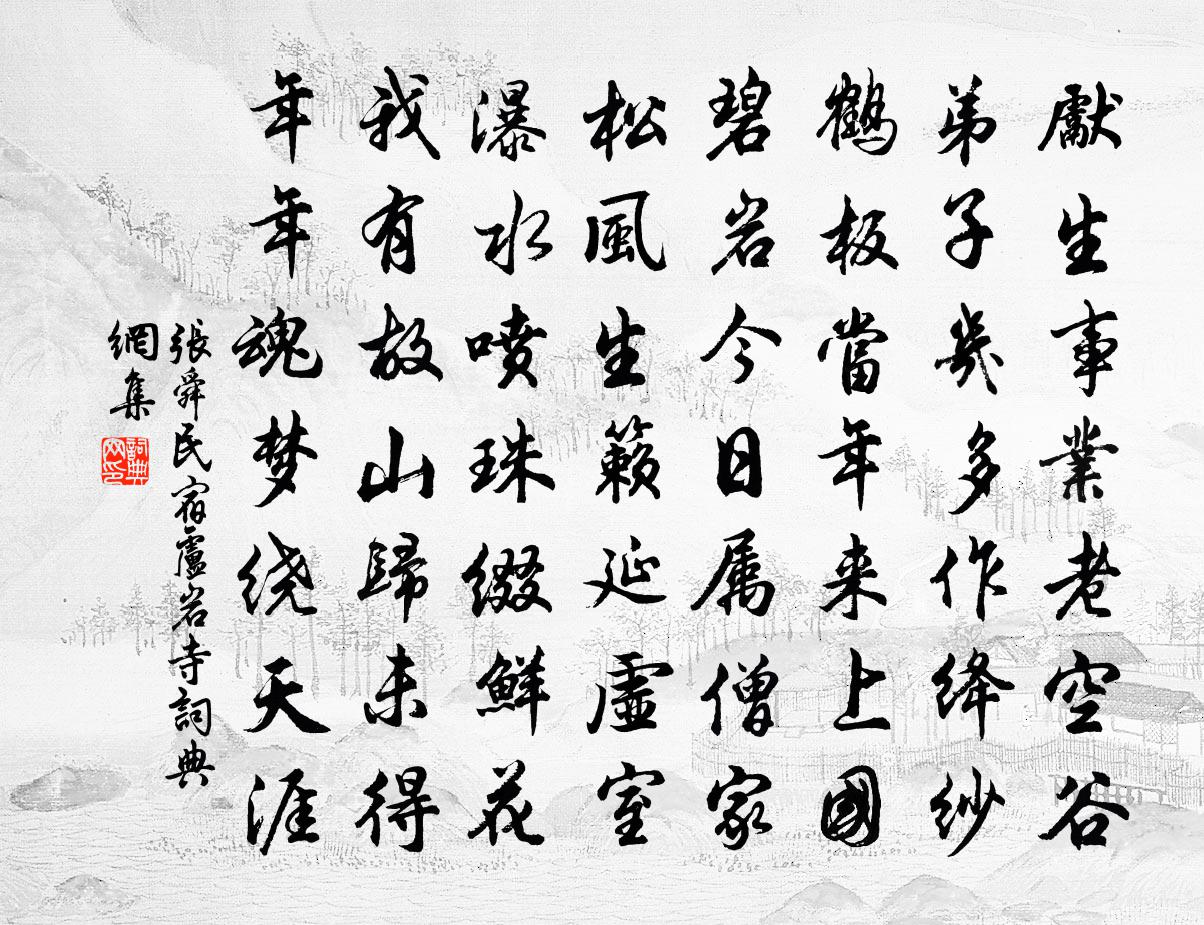 獻生事業老空谷
弟子幾多作绛紗
鶴板當年来上國
碧岩今日属僧家
松風生籟延虛室
瀑水喷珠缀鮮花
我有故山歸未得
年年魂梦绕天涯
張舜民宿盧岩寺詞典
網集
詞典
网印